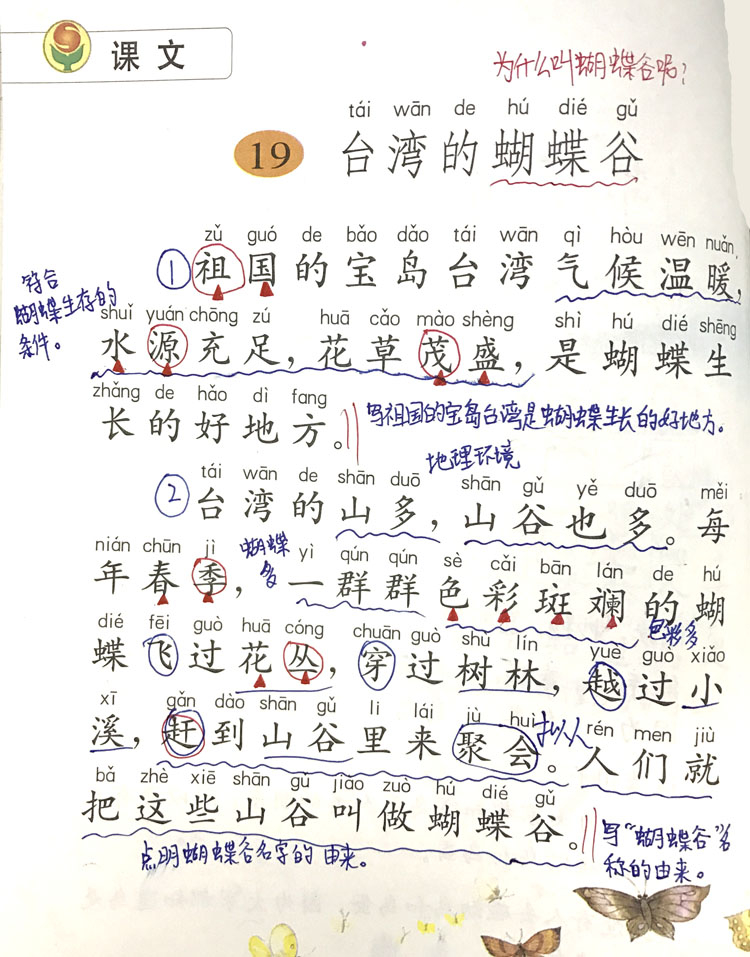 课文
为什么叫蝴蝶谷呢?
tái wān de hú dié gǔ
19 台湾的蝴蝶谷
zǔ guó de bǎo dǎo tái wān qì hòu wēn nuǎn,
① 祖国的宝岛台湾气候温暖,
符合
蝴蝶生存的
条件。
shuǐ yuán chōng zú huā cǎo mào shèng shì hú dié shēng
水源充足,花草茂盛,是蝴蝶生
zhǎng de hǎo dì fang
长的好地方。
写祖国的宝岛台湾是蝴蝶生长的好地方。
地理环境
tái wān de shān duō shān gǔ yě duō měi
② 台湾的山多,山谷也多。每
nián chūn jì yì qún qún sè cǎi bān lán de hú
蝴蝶
多
年春季,一群群色彩斑斓的蝴
色彩多
dié fēi guò huā cóng chuān guò shù lín yuè guò xiǎo
蝶飞过花丛,穿过树林,越过小
xī gǎn dào shān gǔ li lái jù huì rén men jiù
溪,赶到山谷里来聚会。人们就
拟人
bǎ zhè xiē shān gǔ jiào zuò hú dié gǔ
把这些山谷叫做蝴蝶谷。
点明蝴蝶谷名字的由来。
写“蝴蝶谷”名
称的由来。